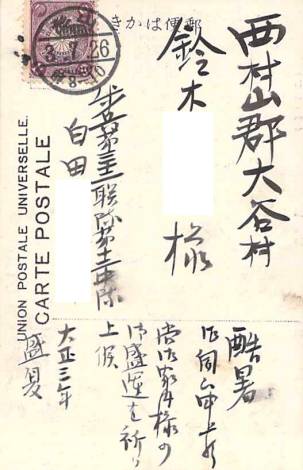 郵便はかき
UNION POSTALE UNIVERSELLE.
CARTE POSTALE
3.7.26
西村山郡大谷村
鈴木
様
歩兵第三十二聯隊第十一中隊
白田
酷暑
御伺申上
尚御家内様の
御盛運を祈り
上候
大正三年
盛夏